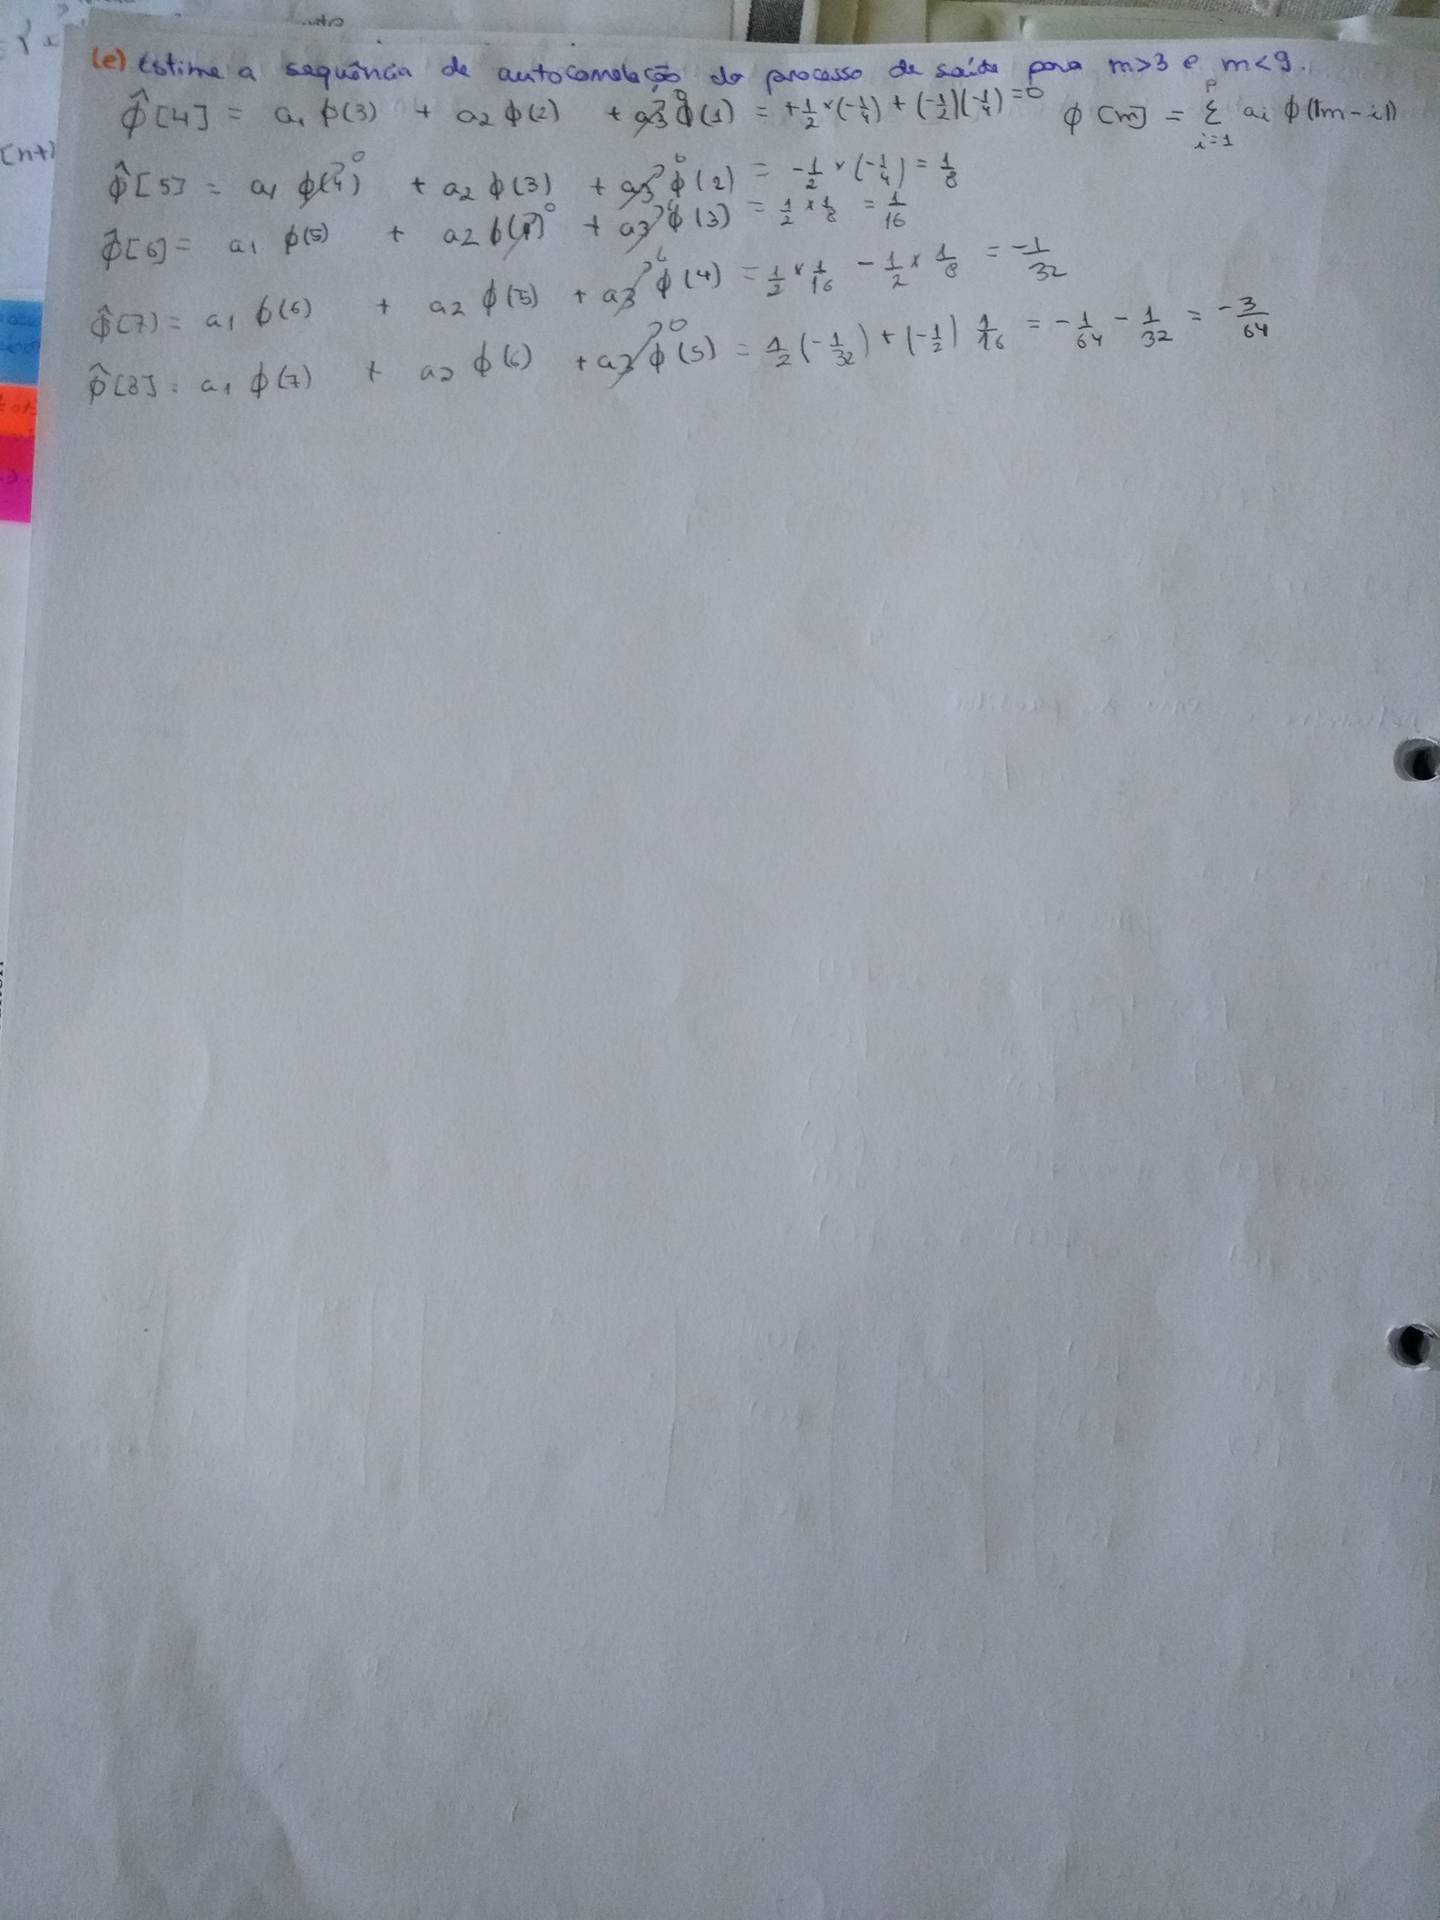 (e) Estime a sequência de autocorrelação do processo de saída para m>3 e m<9.
ϕ̂[4] = a₁ ϕ(3) + a₂ ϕ(2) + a₃ ϕ(1) = +1/2 × (-1/4) + (-1/2)(-1/4) = 0
ϕ[m] = Σ_{i=1}^{p} aᵢ ϕ(|m-i|)
ϕ̂[5] = a₁ ϕ(4) + a₂ ϕ(3) + a₃ ϕ(2) = -1/2 × (-1/4) = 1/8
ϕ̂[6] = a₁ ϕ(5) + a₂ ϕ(4) + a₃ ϕ(3) = 1/2 × 1/8 = 1/16
ϕ̂(7) = a₁ ϕ(6) + a₂ ϕ(5) + a₃ ϕ(4) = 1/2 × 1/16 - 1/2 × 1/8 = -1/32
ϕ̂[8] = a₁ ϕ(7) + a₂ ϕ(6) + a₃ ϕ(5) = 1/2 (-1/32) + (-1/2) 1/16 = -1/64 - 1/32 = -3/64